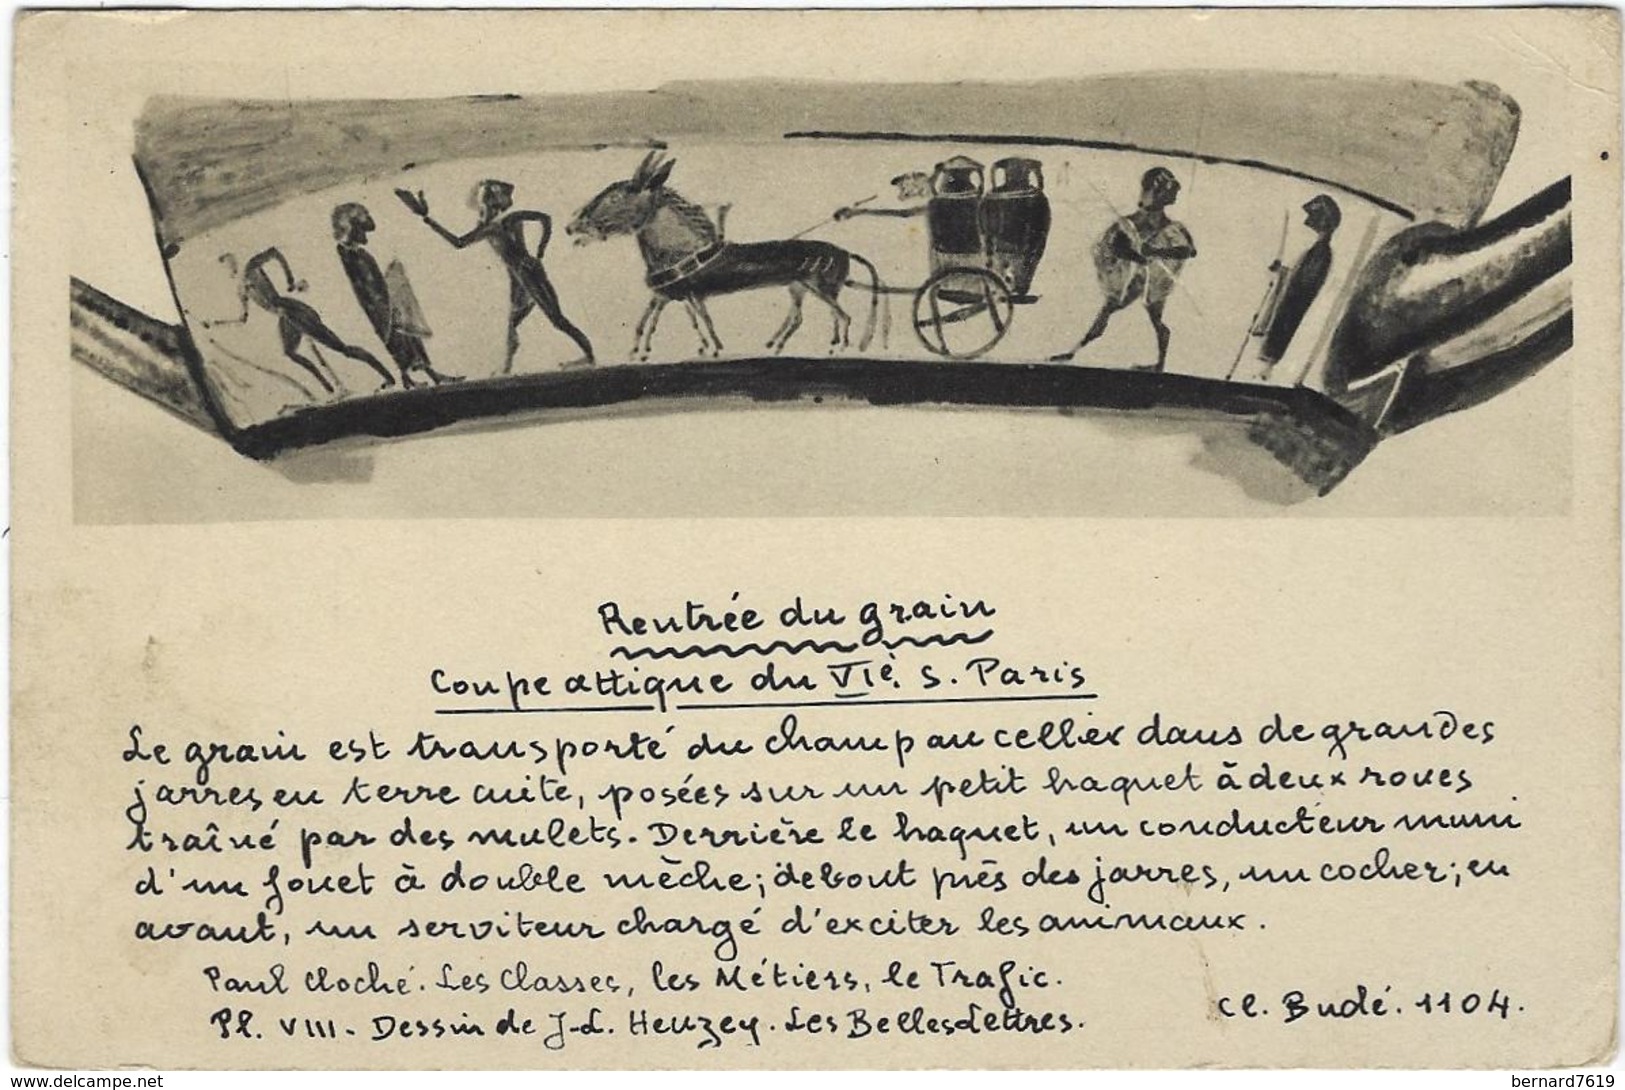 Rentrée du grain
Coupe attique du VIè. s. Paris
Le grain est transporté du champ au cellier dans de grandes
jarres en terre cuite, posées sur un petit haquet à deux roues
traîné par des mulets. Derrière le haquet, un conducteur muni
d'un fouet à double mèche; debout près des jarres, un cocher; en
avant, un serviteur chargé d'exciter les animaux.
Paul Cloché. Les Classes, les Métiers, le Trafic.
Pl. VIII. Dessin de J-L. Heuzey. Les Belles Lettres.
Cl. Budé. 1104.
www.delcampe.net
bernard7619